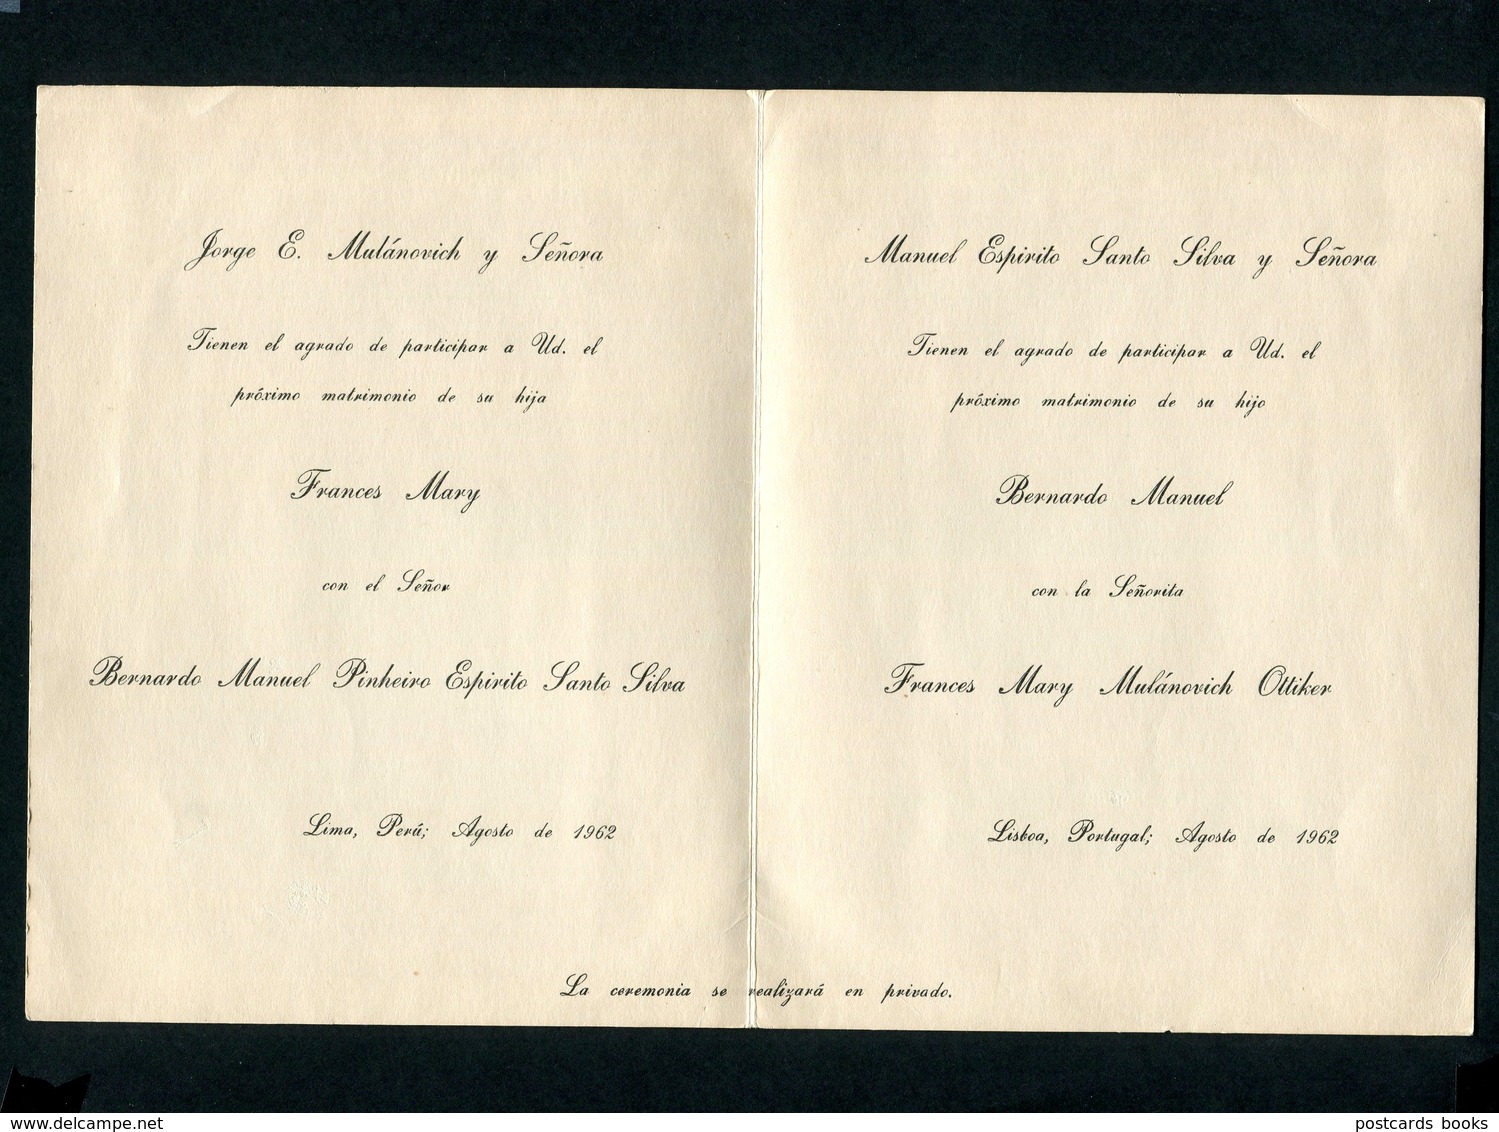 Jorge E. Mulánovich y Señora
Tienen el agrado de participar a Ud. el
próximo matrimonio de su hija
Frances Mary
con el Señor
Bernardo Manuel Pinheiro Espirito Santo Silva
Lima, Perú; Agosto de 1962
Manuel Espirito Santo Silva y Señora
Tienen el agrado de participar a Ud. el
próximo matrimonio de su hijo
Bernardo Manuel
con la Señorita
Frances Mary Mulánovich Ottiker
Lisboa, Portugal; Agosto de 1962
La ceremonia se realizará en privado.
www.delcampe.net
postcards books